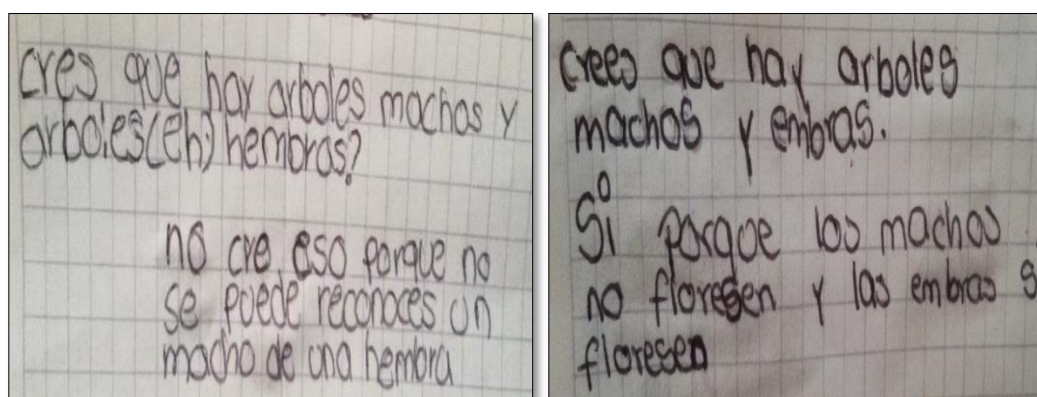 cres que hay arboles machos y
arboles(eh) hembras?
no cre eso porque no
se puede reconoces un
macho de una hembra
crees que hay arboles
machos y embras.
Si porque los machos
no floresen y las embras s
floresen